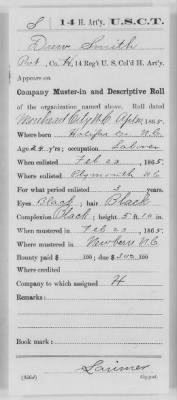 S | 14 H. Art'y. | U.S.C.T.
Drew Smith
Pvt, Co. H, 14 Reg't U. S. Col'd H. Art'y.
Appears on
Company Muster-in and Descriptive Roll
of the organization named above. Roll dated
Morehead City N.C. Apl 1865.
Where born Halifax Co. N.C.
Age 24 y'rs; occupation Laborer
When enlisted Feb 22, 1865.
Where enlisted Plymouth N.C.
For what period enlisted 3 years.
Eyes Black; hair Black
Complexion Black; height 5 ft. 10 in.
When mustered in Feb 22, 1865.
Where mustered in Newbern N.C.
Bounty paid $ 100; due $ 300 100
Where credited
Company to which assigned H
Remarks:
Book mark:
Larimer
Copyist.